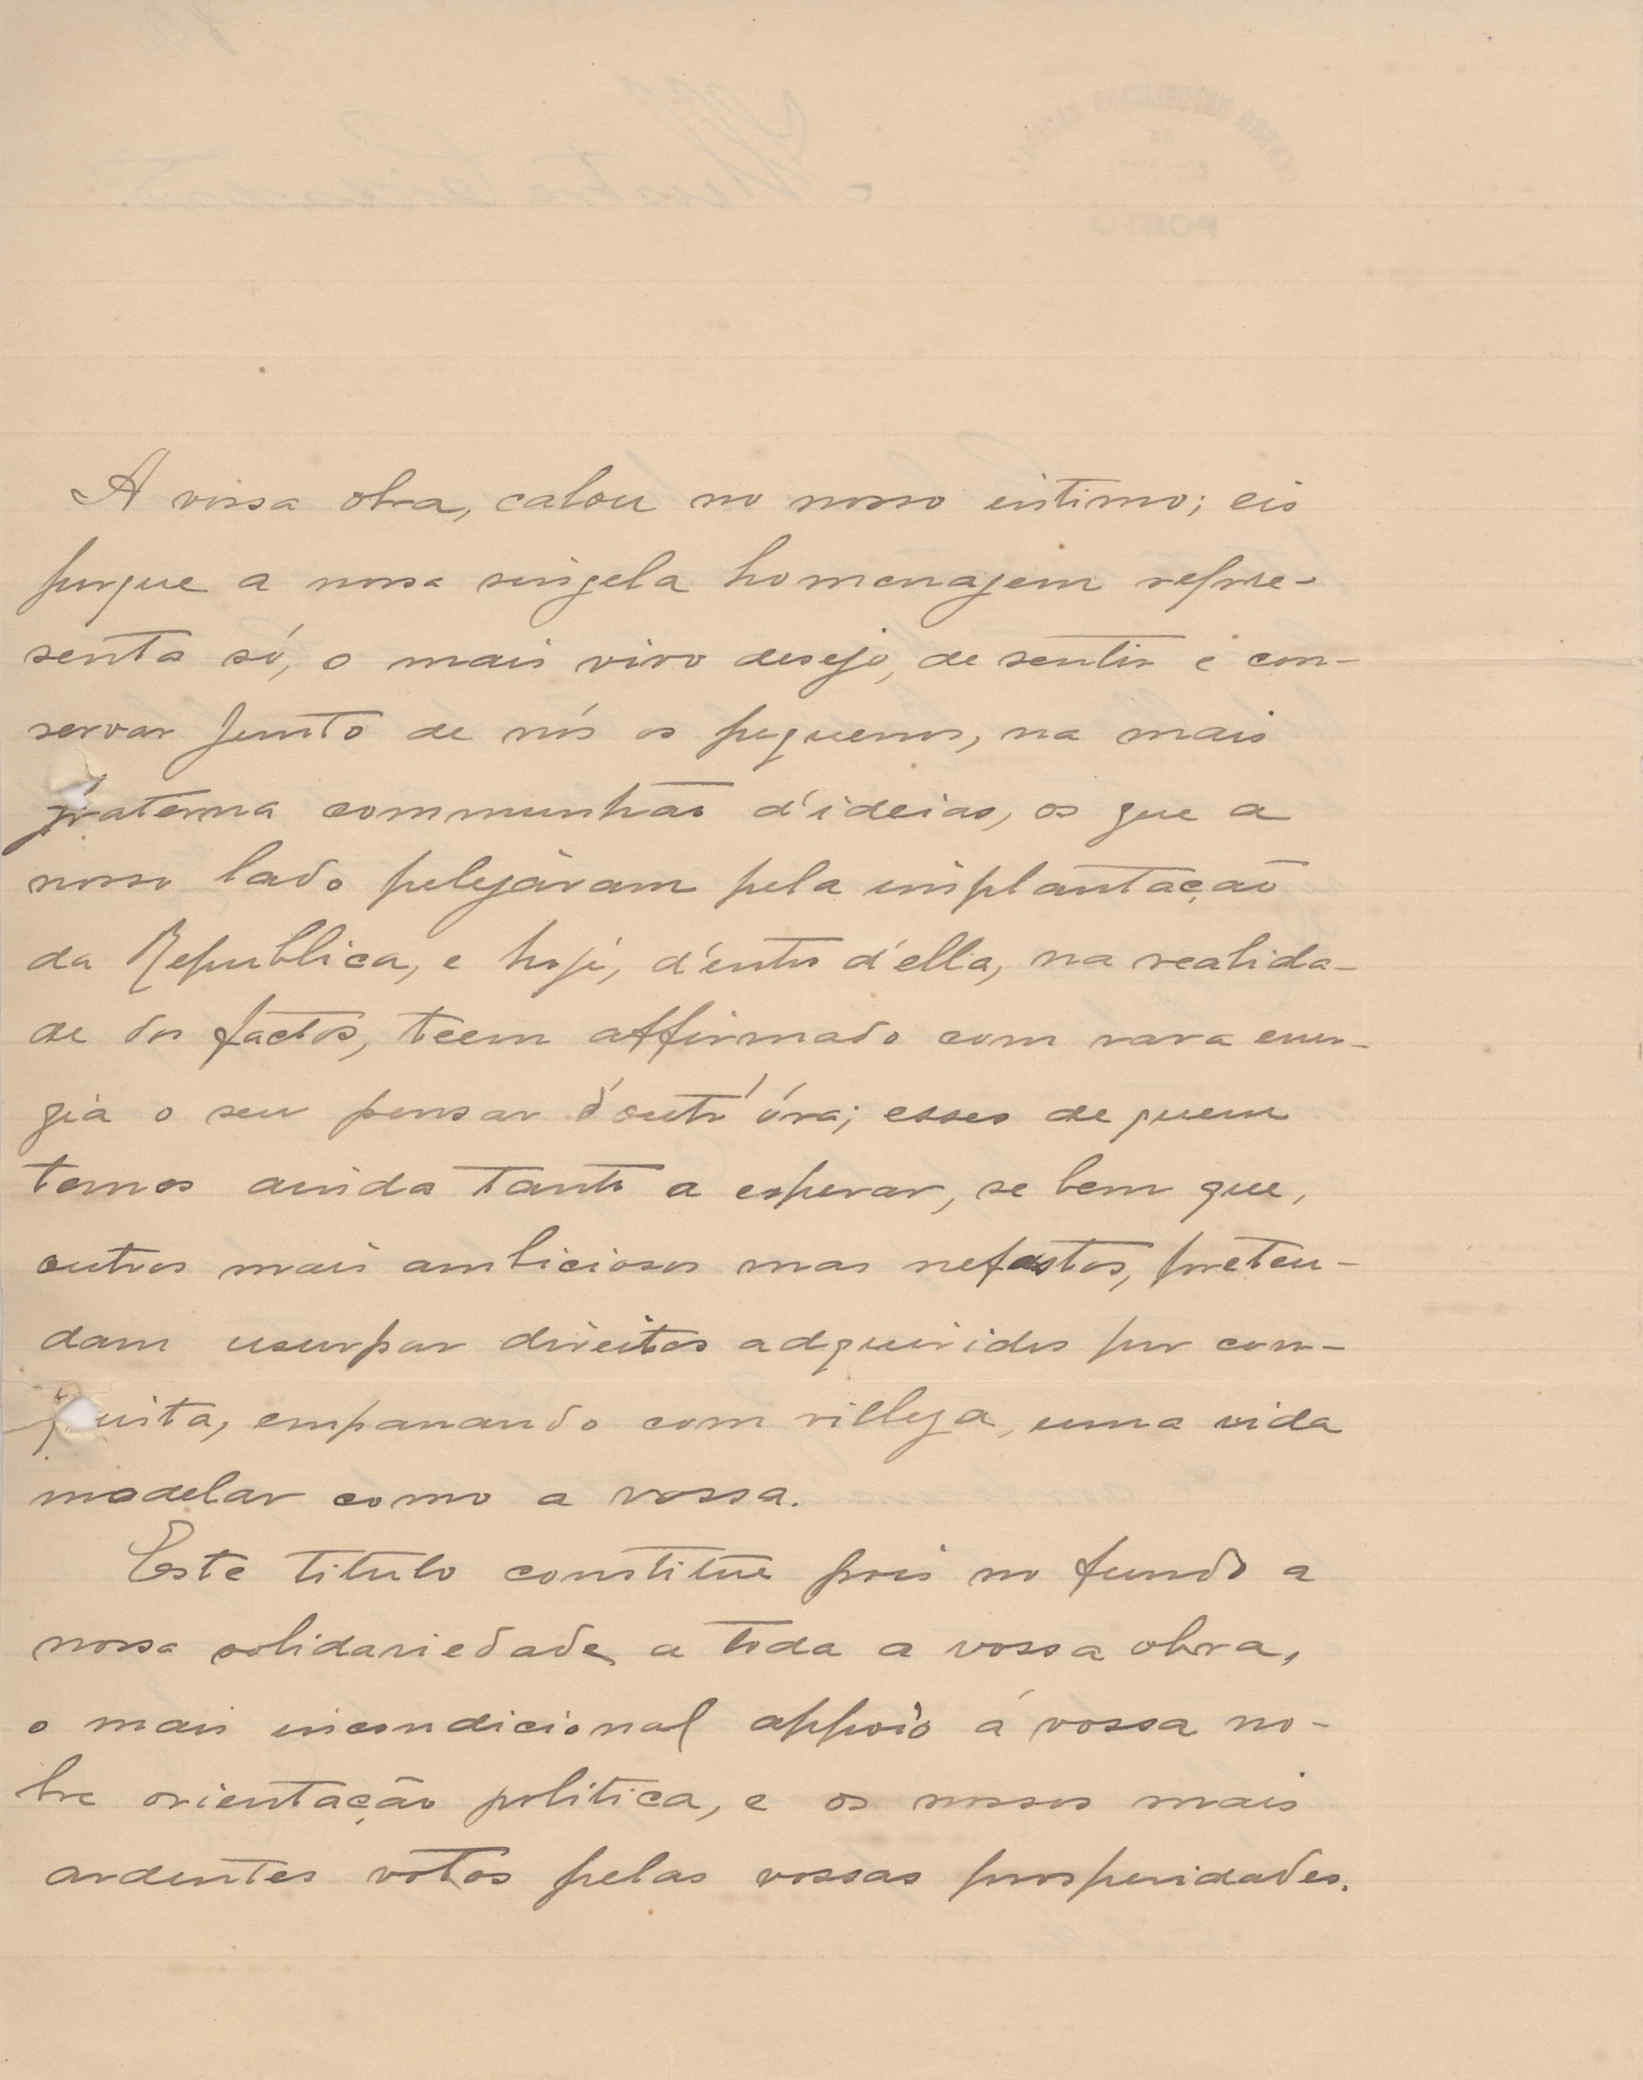 A vossa obra, calou no nosso intimo; eis
porque a nossa singela homenagem repre-
senta só, o mais vivo desejo, de sentir e con-
servar junto de nós os pequenos, na mais
fraterna communhão d'ideias, os que a
nosso lado pelejáram pela implantação
da Republica, e hoje, d'entro d'ella, na realida-
de dos factos, teem affirmado com rara ener-
gia o seu pensar d'outr'óra; esses de quem
temos ainda tanto a esperar, se bem que,
outros mais ambiciosos mas nefastos, preten-
dam usurpar direitos adquiridos por con-
quista, empanando com villeza, uma vida
modelar como a vossa.
Este titulo constitue pois no fundo a
nossa solidariedade a toda a vossa obra,
o mais incondicional appoio á vossa no-
bre orientação politica, e os nossos mais
ardentes votos pelas vossas prosperidades.